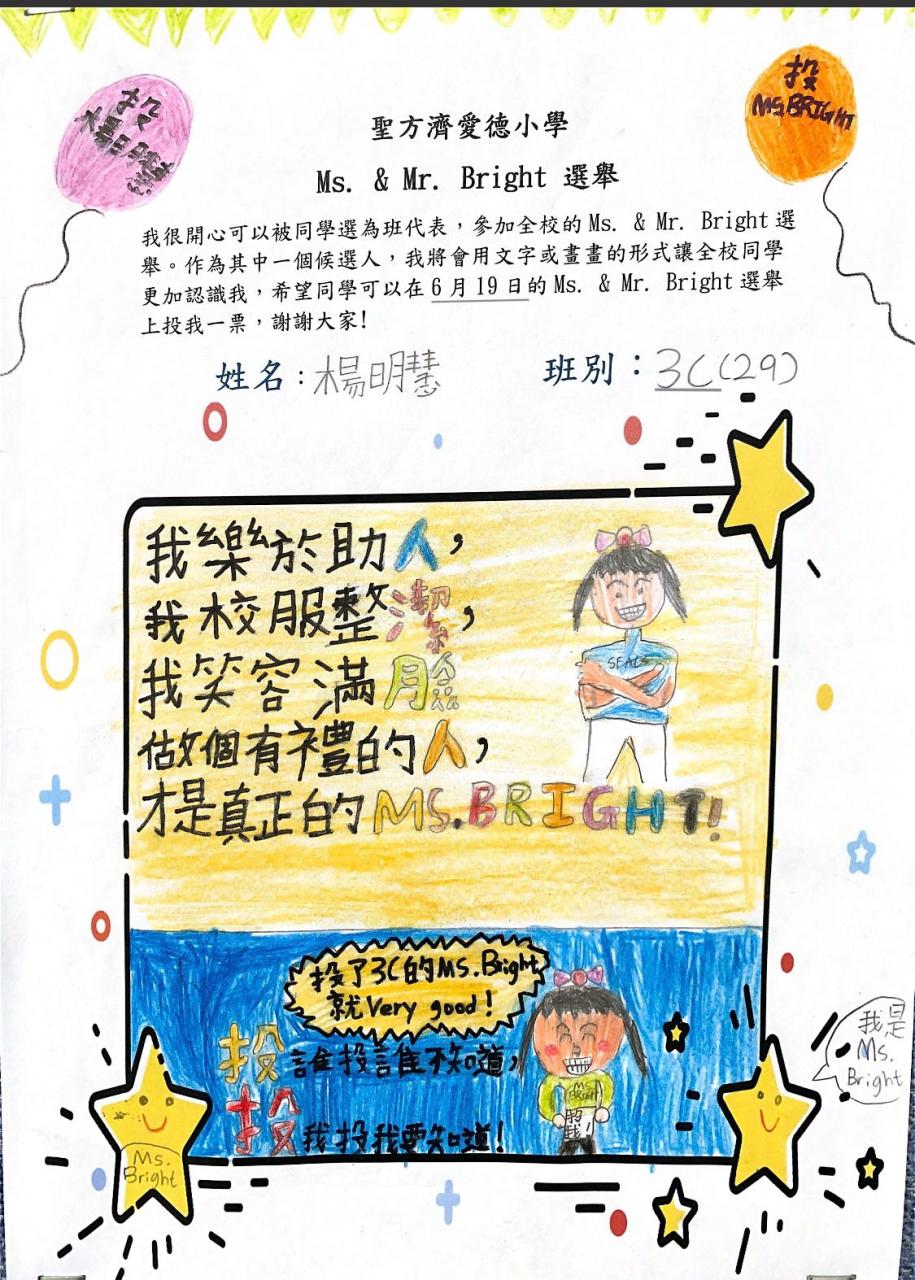 投
楊明慧
投
MS.BRIGHT
聖方濟愛德小學
Ms. & Mr. Bright 選舉
我很開心可以被同學選為班代表，參加全校的 Ms. & Mr. Bright 選
舉。作為其中一個候選人，我將會用文字或畫畫的形式讓全校同學
更加認識我，希望同學可以在 6 月 19 日的 Ms. & Mr. Bright 選舉
上投我一票，謝謝大家!
姓名：楊明慧 班別：3C(29)
我樂於助人，
我校服整潔，
我笑容滿臉
做個有禮的人，
才是真正的MS.BRIGHT!
SEALS
投了3C的MS.Bright
就Very good!
投誰投誰不知道，
投我投我要知道!
MS
BRIGHT
我是
Ms.
Bright
Ms.
Bright